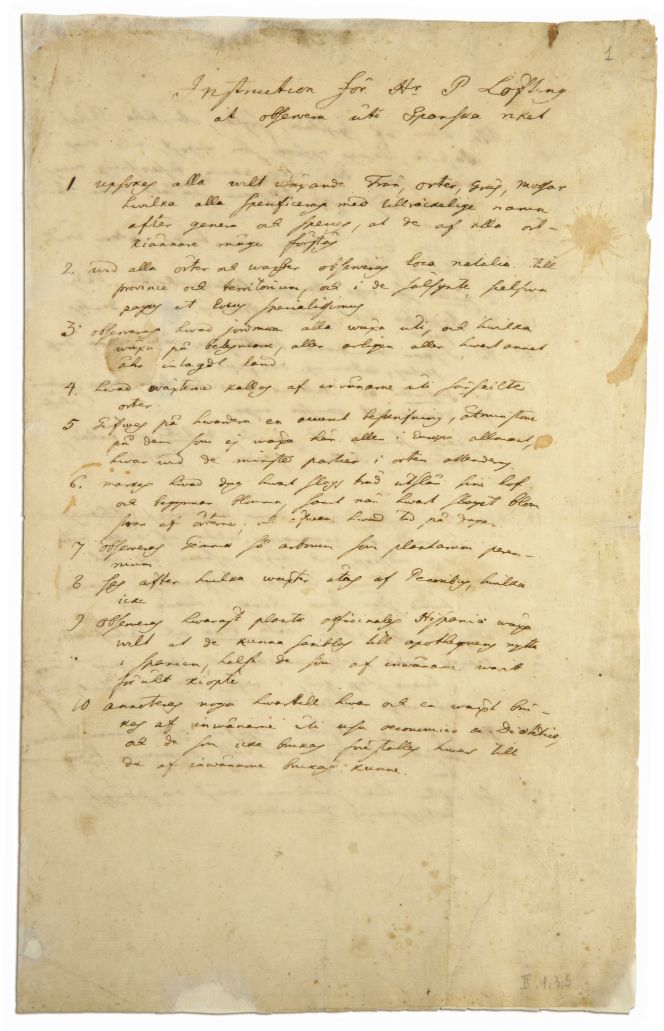 1
Instruction för Hr P Löfling
at observera uti Spanska riket
1. upsökes alla wilt wäxande Trän, örter, gräs, mosar
hwilka alla specificeras med tillräckelige namn
after genera och species, at de af alla ört-
kiännare måge förstås
2. wid alla örter och wäxter observeras loca natalia till
province och territorium, och i de sälsynte, sielfwa
pagus et locus specialissimus
3. observeras hwad jordmån alla wäxa uti, och hwilka
wäxa på bergen, eller eller hwart annat
ähr intagdt land.
4. hwad wäxterne kallas af inwånarne uti särskilte
orter
5 Gifwes på hwardera en accurat beskrifning, åtminstone
på dem som ej wäxa här eller i Europa allmänt,
hwar wid de minste partier i örten attenderas
6. märkes hwad dag hwart slags träd utslår sina löf
och begynner blomma, samt när hwart slaget blom
af örterne; och hwad tid på dagen
7 observeras Gemmæ så arborum som plantarum peren-
nium
8 ses after hwilka wäxter ätas af Pecoribus, hwilka
icke
9 observeras hwarest plantæ officinales Hispaniæ wäxa
wilt at de kunna samblas till apothequens nytta
i Spanien, helst de som af inwånarne warit
förut kiöpte
10 annoteras noga hwartill hwar och en wäxt bru-
kas af inwånarne uti usu oeconomico & Diætetico,
och de som icke brukas föreställes hwar till
de af inwånarne brukas kunne.
II.1.3.5